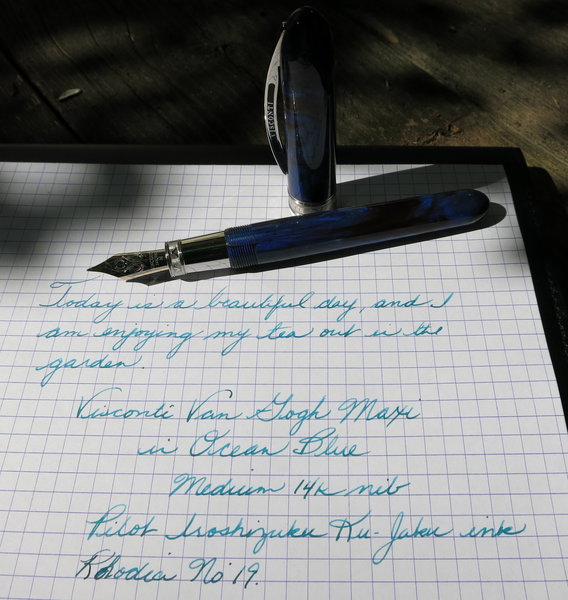 VISCONTI
Today is a beautiful day, and I
am enjoying my tea out in the
garden.
Visconti Van Gogh Maxi
in Ocean Blue
Medium 14k nib
Pilot Iroshizuku Ku-Jaku ink
Rhodia No 19.